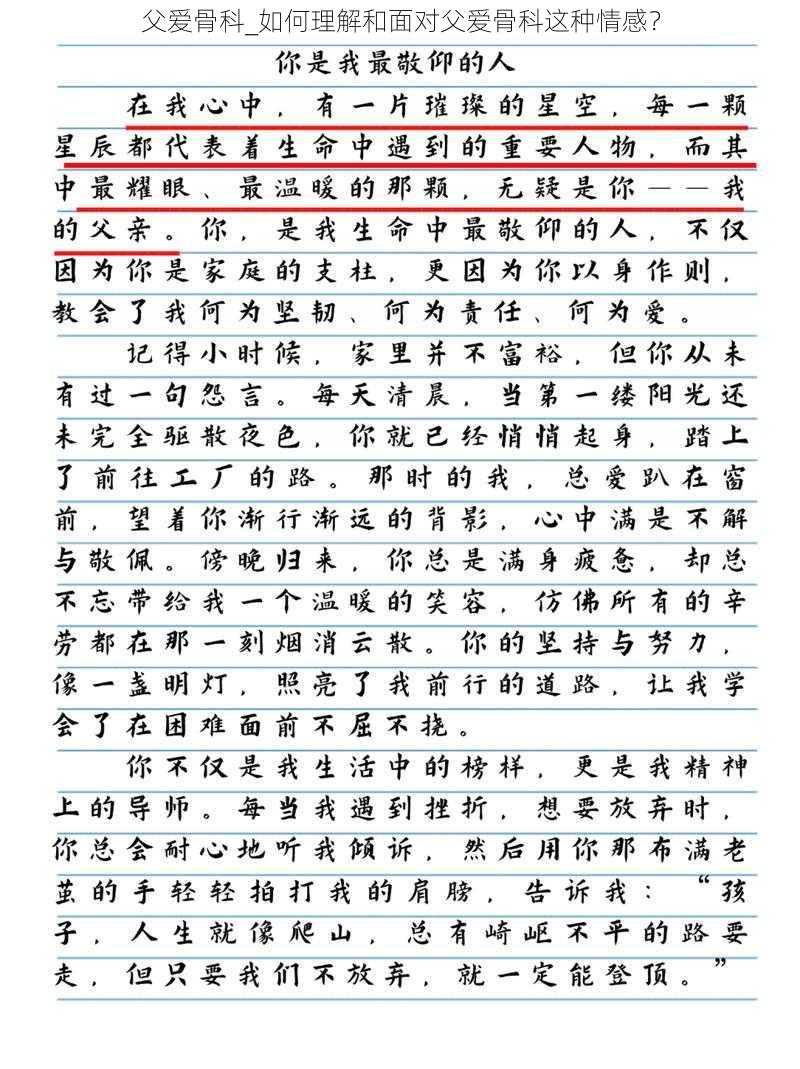 父爱骨科_如何理解和面对父爱骨科这种情感？
你是我最敬仰的人
在我心中，有一片璀璨的星空，每一颗
星辰都代表着生命中遇到的重要人物，而其
中最耀眼、最温暖的那颗，无疑是你——我
的父亲。你，是我生命中最敬仰的人，不仅
因为你是家庭的支柱，更因为你以身作则，
教会了我何为坚韧、何为责任、何为爱。
记得小时候，家里并不富裕，但你从未
有过一句怨言。每天清晨，当第一缕阳光还
未完全驱散夜色，你就已经悄悄起身，踏上
了前往工厂的路。那时的我，总爱趴在窗
前，望着你渐行渐远的背影，心中满是不解
与敬佩。傍晚归来，你总是满身疲惫，却总
不忘带给我一个温暖的笑容，仿佛所有的辛
劳都在那一刻烟消云散。你的坚持与努力，
像一盏明灯，照亮了我前行的道路，让我学
会了在困难面前不屈不挠。
你不仅是我生活中的榜样，更是我精神
上的导师。每当我遇到挫折，想要放弃时，
你总会耐心地听我倾诉，然后用你那布满老
茧的手轻轻拍打我的肩膀，告诉我：“孩
子，人生就像爬山，总有崎岖不平的路要
走，但只要我们不放弃，就一定能登顶。”